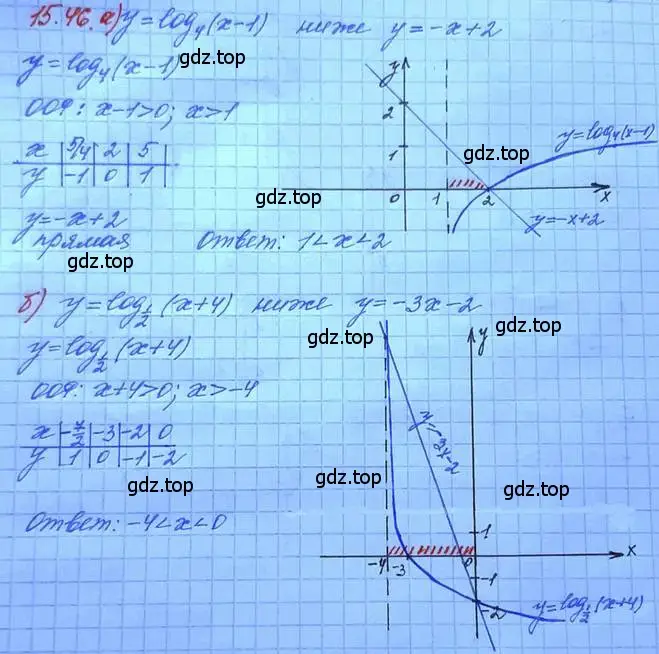 15.46. а) y=log₄(x-1) ниже y=-x+2
y=log₄(x-1)
ООФ: x-1>0; x>1
x | 5/4 | 2 | 5
y | -1 | 0 | 1
y=-x+2
прямая
Ответ: 1<x<2
y
2
1
0 1 2 x
y=log₄(x-1)
y=-x+2
gdz.top
gdz.top
gdz.top
gdz.top
б) y=log½(x+4) ниже y=-3x-2
y=log½(x+4)
ООФ: x+4>0; x>-4
x | -7/2 | -3 | -2 | 0
y | 1 | 0 | -1 | -2
Ответ: -4<x<0
y
y=-3x-2
1
-4 -3 0 x
-1
-2
y=log½(x+4)
gdz.top
gdz.top
gdz.top
gdz.top
gdz.top